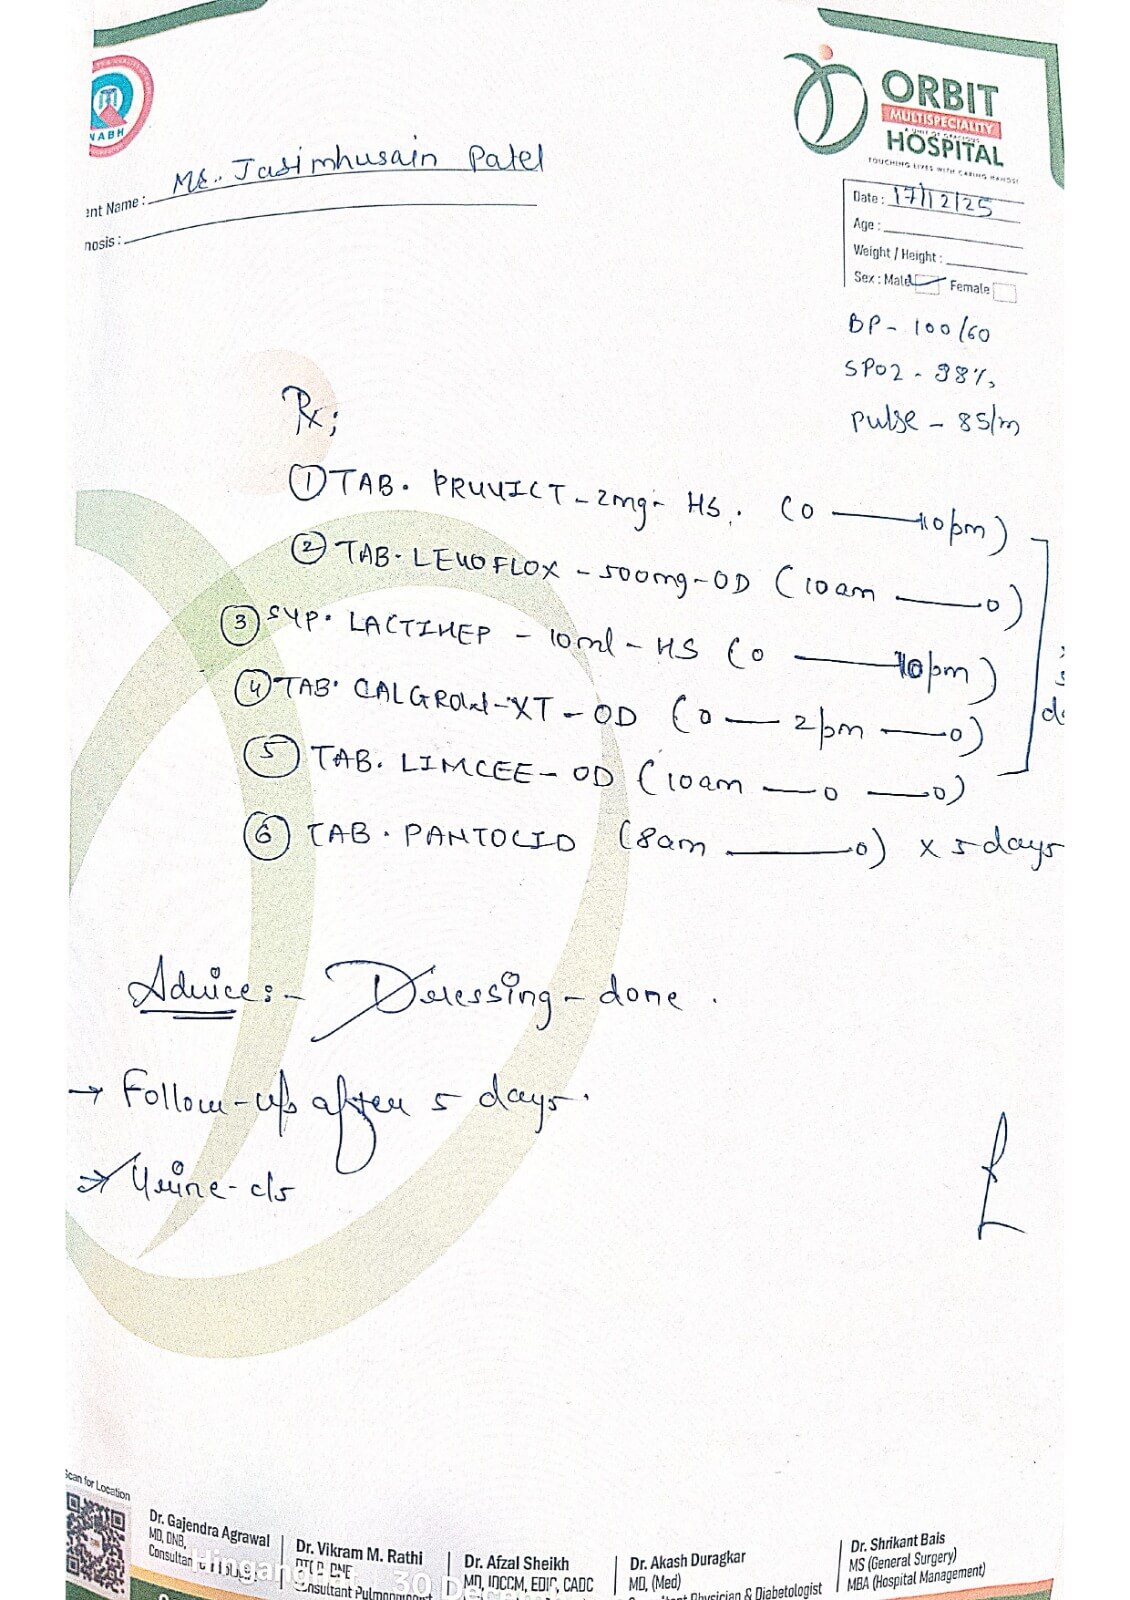 NABH
ORBIT
MULTISPECIALITY
HOSPITAL
TOUCHING LIVES WITH CARING HANDS!
ent Name : Mr. Jasimhusain Patel
nosis :
Date : 17/12/25
Age :
Weight / Height :
Sex : Male Female
BP - 100/60
SPO2 - 98%
pulse - 85/m
Rx;
① TAB. PRUVICT - 2mg - HS. (0 — 10pm)
② TAB. LEVOFLOX - 500mg - OD (10am — 0)
③ SYP. LACTIHEP - 10ml - HS (0 — 10pm)
④ TAB. CALGROW-XT - OD (0 — 2pm — 0)
⑤ TAB. LIMCEE - OD (10am — 0 — 0)
⑥ TAB. PANTOCID (8am — 0) x 5 days
Advice:- Dressing - done .
→ Follow-up after 5 days.
→ Urine - c/s
Scan for Location
Dr. Gajendra Agrawal
MD, DNB,
Dr. Vikram M. Rathi
Dr. Afzal Sheikh
MD, IDCCM, EDIC, CADC
Dr. Akash Duragkar
MD, (Med)
Physician & Diabetologist
Dr. Shrikant Bais
MS (General Surgery)
MBA (Hospital Management)
30 Dec